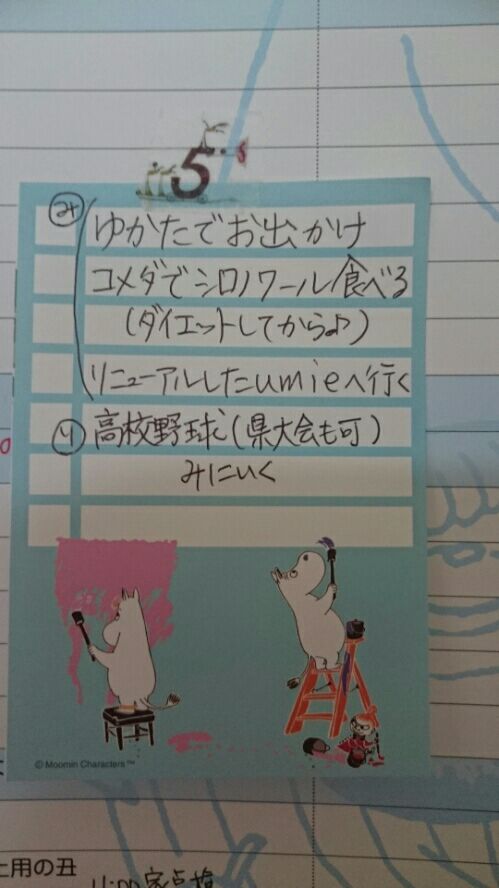 5
み ゆかたでお出かけ
コメダでシロノワール食べる
(ダイエットしてから♪)
リニューアルしたumieへ行く
り 高校野球(県大会も可)
みにいく
© Moomin Characters™
土用の丑